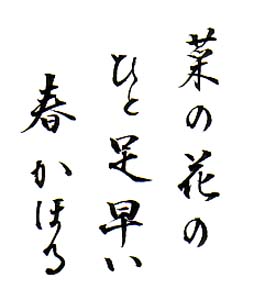 菜の花の
ひと足早い
春かほる